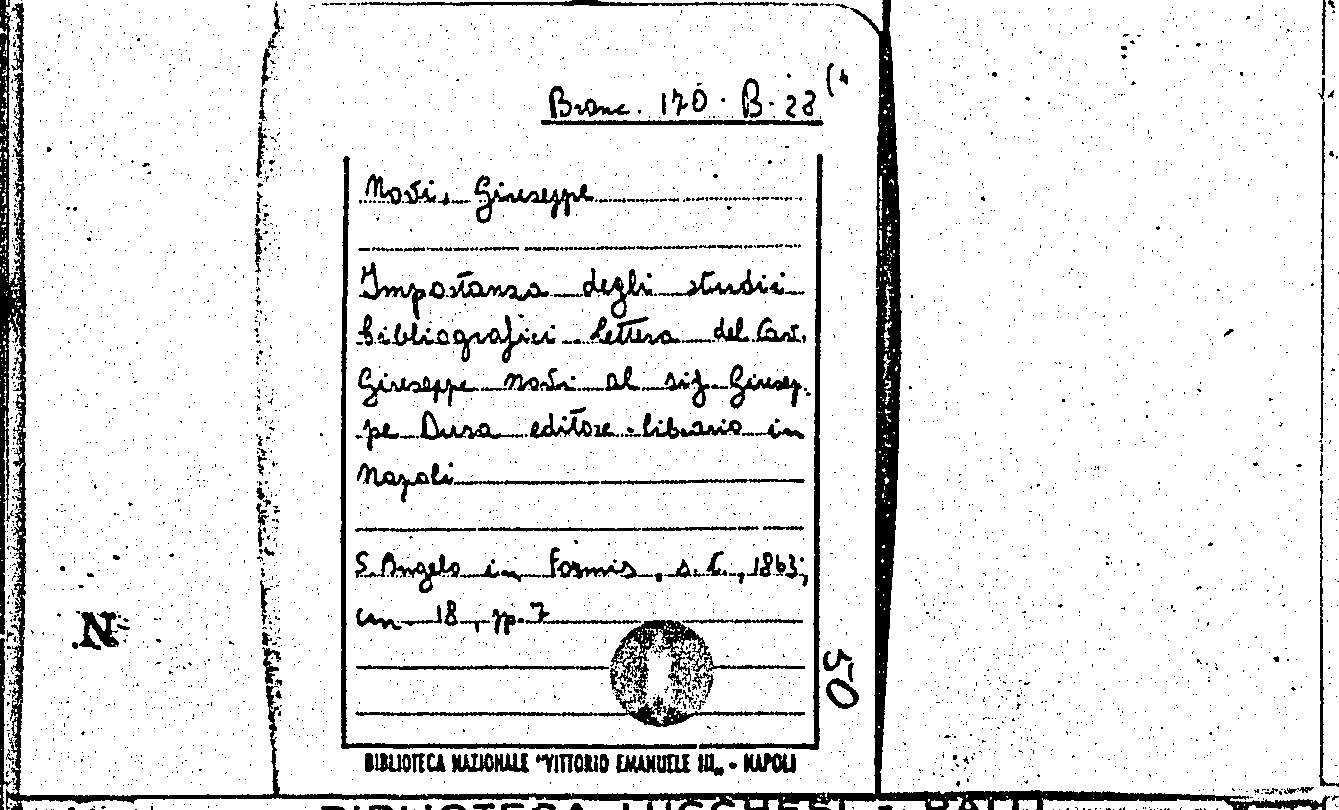 Branc. 170. B. 28 (4
Novi, Giuseppe
Importanza degli studii
bibliografici lettera del Cav.
Giuseppe Novi al sig. Giusep.
pe Dura editore-librario in
Napoli
S. Angelo in Formis, s. t., 1863;
cm. 18, pp. 7
50
N
BIBLIOTECA NAZIONALE "VITTORIO EMANUELE III„ - NAPOLI
BIBLIOTECA LUCCHESI - PALLI